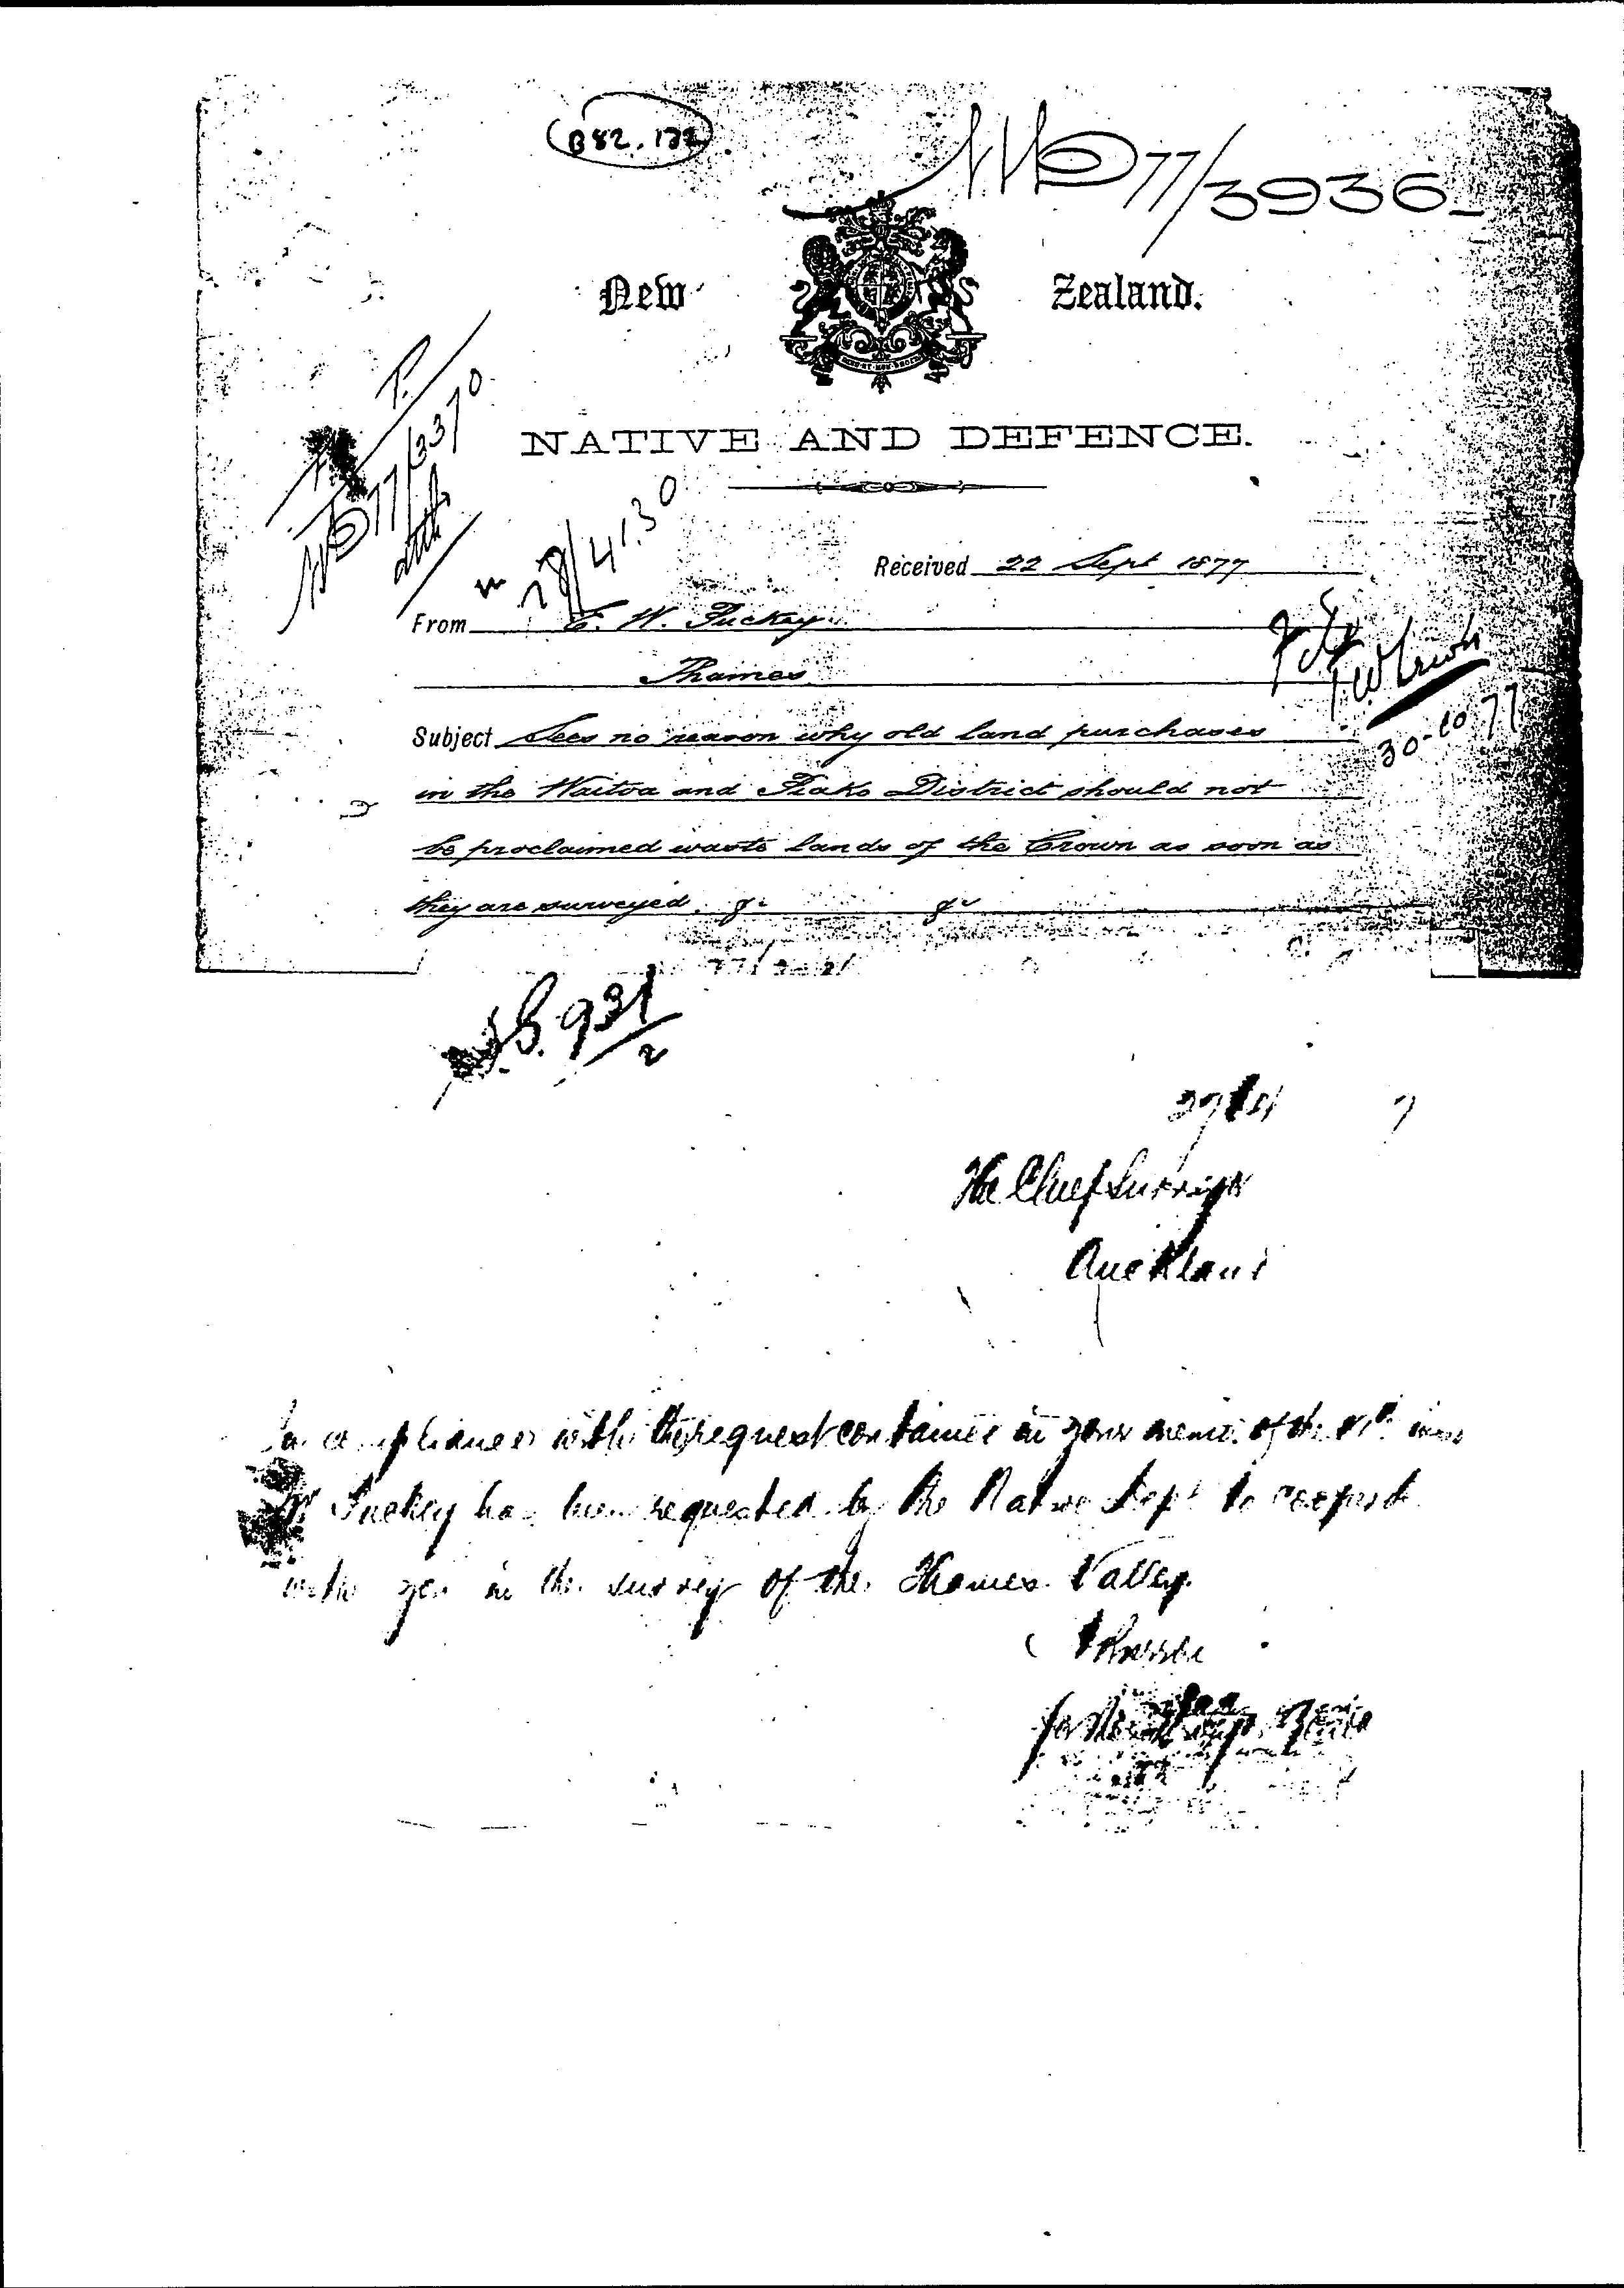 B82.132
ND 77/3936
New Zealand.
NATIVE AND DEFENCE.
P.
ND 77/3370
78/4130
Received 22 Sept 1877
From E. W. Puckey
Thames
Subject Sees no reason why old land purchases
in the Waitoa and Piako District should not
be proclaimed waste lands of the Crown as soon as
they are surveyed. &c &c
File
30-10-77
931/2
The Chief Surveyor
Auckland
In compliance with the request contained in your memo. of the
Mr Puckey has been requested by the Native Dept to cooperate
with you in the survey of the Thames Valley.